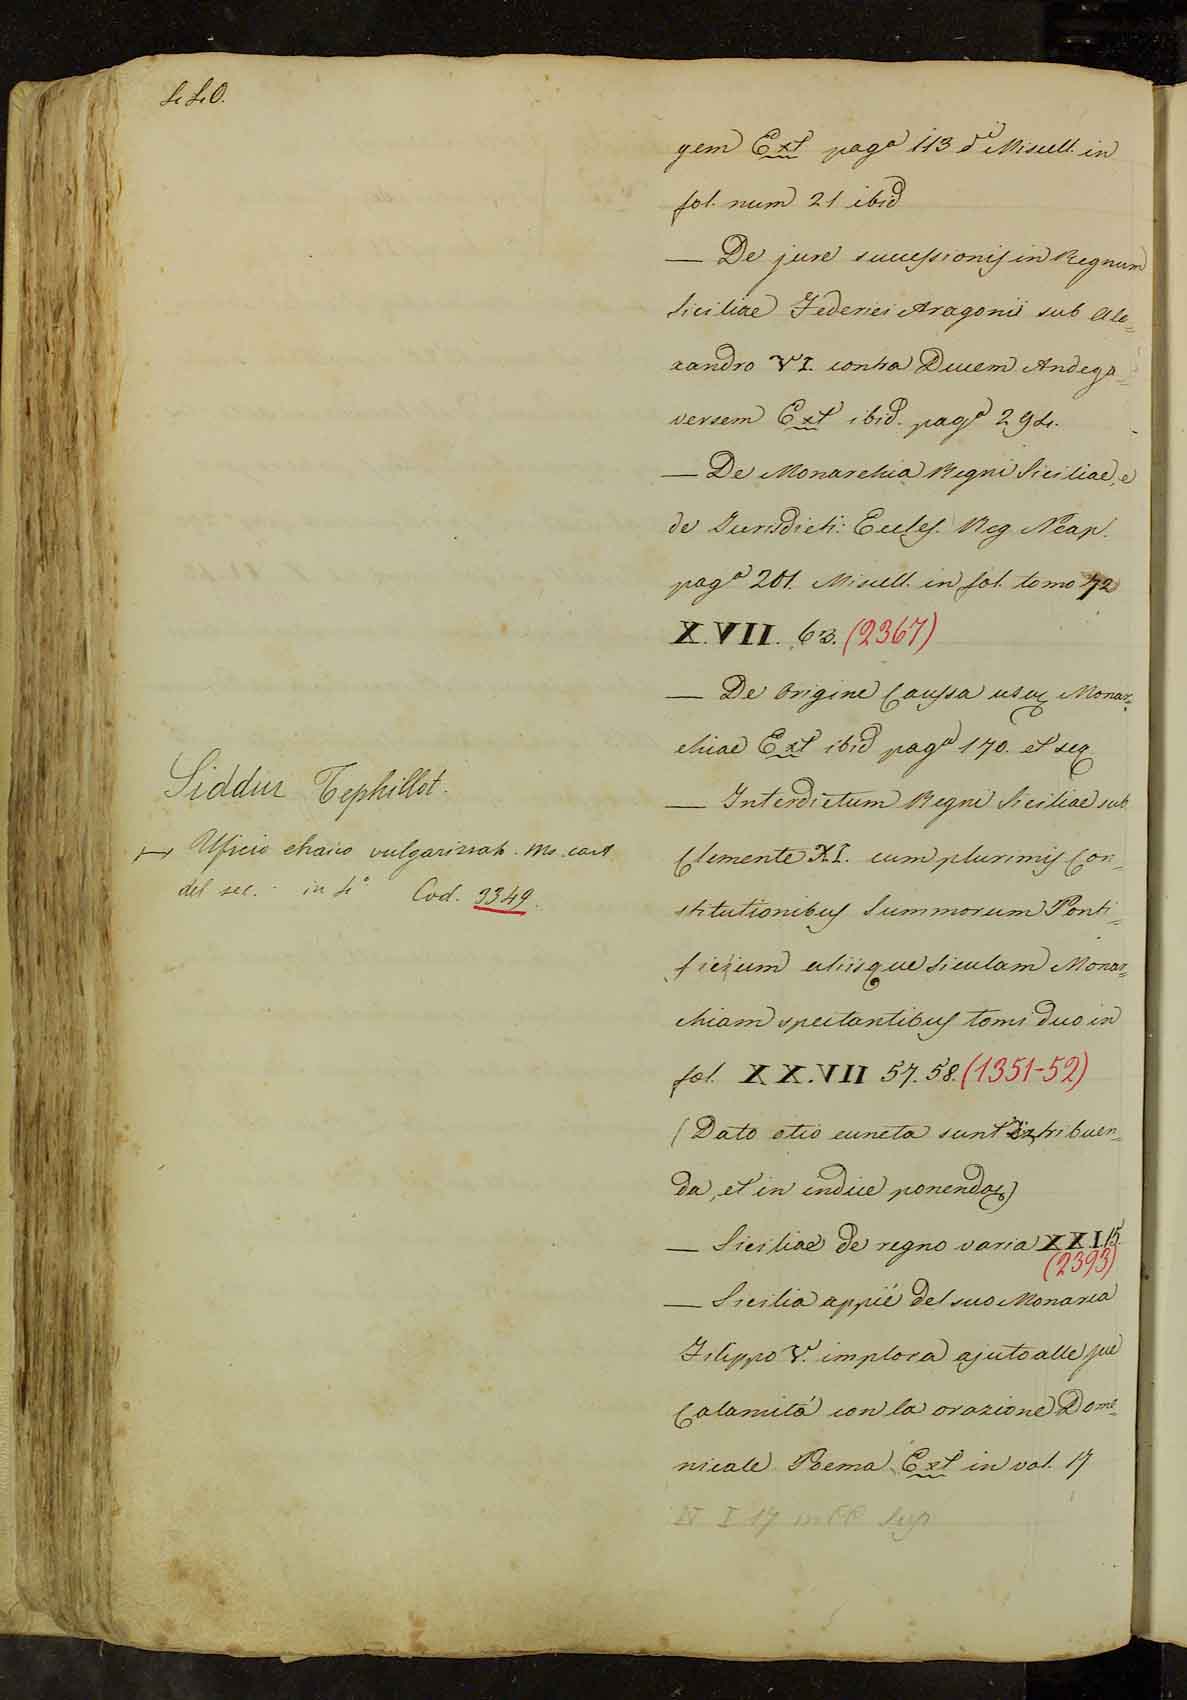 440.
gem Ext pagᵃ 113 d' Miscell. in
fol. num 21 ibid
— De jure successionis in Regnum
Siciliae Federici Aragonii sub Ale=
xandro VI. contra Ducem Andega=
versem Ext ibid. pagᵃ 294.
— De Monarchia Regni Siciliae, e
de Jurisdicti: Eccles. Reg Neap.
pagᵃ 201. Miscell. in fol. tomo 72
X.VII. 63. (2367)
— De Origine Caussa usuq Monar=
chiae Ext ibid pagᵃ 170. et seq.
— Interdictum Regni Siciliae sub
Clemente XI. cum plurimis Con=
stitutionibus Summorum Ponti=
ficium aliisque Siculam Monar=
chiam spectantibus tomi duo in
fol. XX.VII 57. 58. (1351-52)
(Dato otio cuncta sunt distribuen=
da, et in indice ponenda)
— Siciliae de regno varia XXI.15.
(2393)
— Sicilia appiè del suo Monarca
Filippo V. implora ajuto alle sue
Calamità con la orazione Dome=
nicale Poema Ext in vol. 17
N I 17 in
Siddur Tephillot.
Uficio ebraico vulgarizzato. Ms. cart
del sec. · in 4° Cod. 3349.